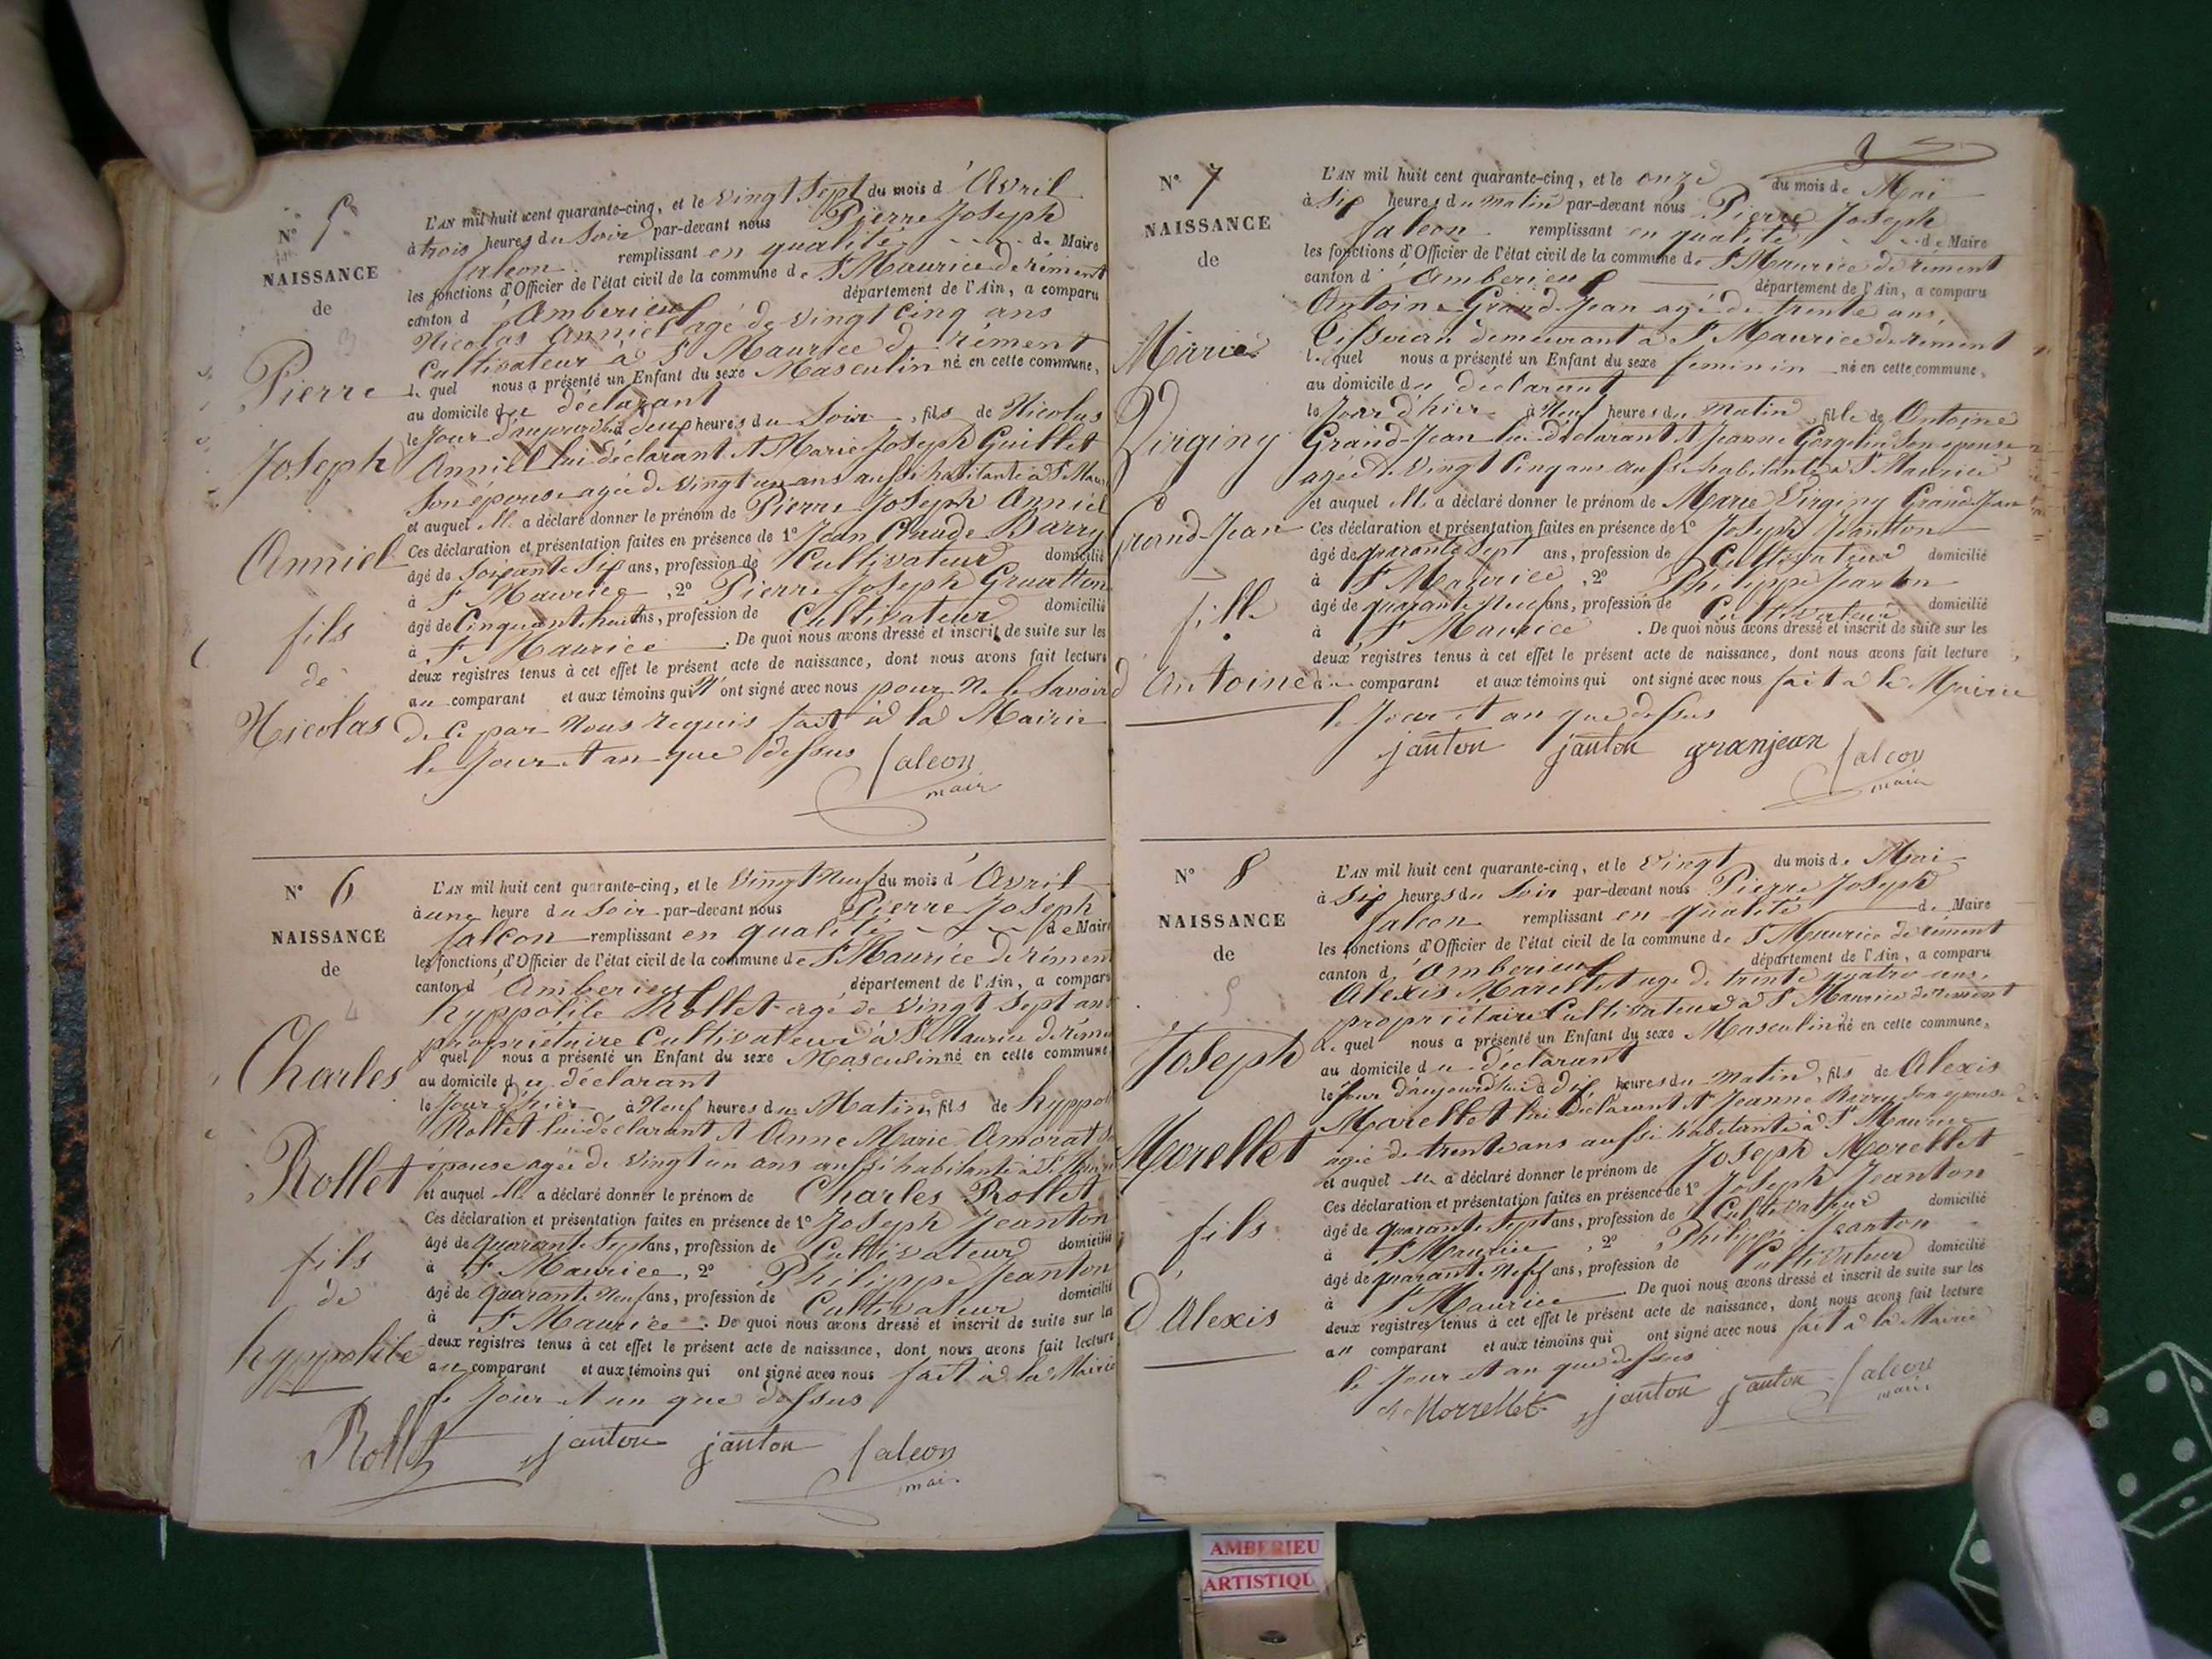 N° 5
NAISSANCE
de
Pierre
Joseph
Anniel
fils
de
Nicolas
L'AN mil huit cent quarante-cinq, et le vingt Sept du mois d'Avril
à trois heures du Soir par-devant nous Pierre Joseph
falcon remplissant en qualité de Maire
les fonctions d'Officier de l'état civil de la commune de St Maurice de rément
canton d'Amberieux département de l'Ain, a comparu
Nicolas Anniel agé de vingt Cinq ans
Cultivateur à St Maurice de rément
le quel nous a présenté un Enfant du sexe Masculin né en cette commune,
au domicile du déclarant
le Jour d'aujourd'hui à deux heures du Soir, fils de Nicolas
Anniel lui déclarant et Marie Joseph Guillet
Son épouse agée de vingt un ans aussi habitante à St
et auquel Il a déclaré donner le prénom de Pierre Joseph Anniel
Ces déclaration et présentation faites en présence de 1° Jean Claude Barry
âgé de Soixante Six ans, profession de Cultivateur domicilié
à St Maurice, 2° Pierre Joseph
âgé de Cinquante huit ans, profession de Cultivateur domicilié
à St Maurice. De quoi nous avons dressé et inscrit de suite sur les
deux registres tenus à cet effet le présent acte de naissance, dont nous avons fait lecture
au comparant et aux témoins qui n'ont signé avec nous pour ne le Savoir
de ce par Nous requis fait à la Mairie
le Jour et an que dessus falcon
mair
N° 6
NAISSANCE
de
4
Charles
Rollet
fils
de
hyppolite
L'AN mil huit cent quarante-cinq, et le Vingt Neuf du mois d'Avril
à une heure du Soir par-devant nous Pierre Joseph
falcon remplissant en qualité de Maire
les fonctions d'Officier de l'état civil de la commune de St Maurice de rément
canton d'Amberieux département de l'Ain, a comparu
hyppolite Rollet agé de Vingt Sept ans
propriétaire Cultivateur à St Maurice de rém
quel nous a présenté un Enfant du sexe Masculin né en cette commune
au domicile du déclarant
le Jour d'hier à Neuf heures du Matin, fils de hyppol
Rollet lui déclarant et Anne Marie Amorat
épouse agée de Vingt un ans aussi habitante à St
et auquel Il a déclaré donner le prénom de Charles Rollet
Ces déclaration et présentation faites en présence de 1° Joseph Jeanton
âgé de quarante Sept ans, profession de Cultivateur domicilié
à St Maurice, 2° Philippe Jeanton
âgé de quarante Neuf ans, profession de Cultivateur domicilié
à St Maurice. De quoi nous avons dressé et inscrit de suite sur les
deux registres tenus à cet effet le présent acte de naissance, dont nous avons fait lecture
au comparant et aux témoins qui ont signé avec nous fait à la Mairie
le Jour et an que dessus
Rollet janton janton falcon
mair
N° 7
NAISSANCE
de
Marie
Virginy
Grand-Jean
fille
d'Antoine
L'AN mil huit cent quarante-cinq, et le onze du mois de Mai
à Six heures du matin par-devant nous Pierre Joseph
falcon remplissant en qualité de Maire
les fonctions d'Officier de l'état civil de la commune de St Maurice de rément
canton d'Amberieux département de l'Ain, a comparu
Antoine Grand-Jean agé de trente ans,
demeurant à St Maurice de rément
le quel nous a présenté un Enfant du sexe feminin né en cette commune,
au domicile du déclarant
le Jour d'hier à Neuf heures du Matin, fille de Antoine
Grand-Jean lui déclarant et Jeanne Son epouse
agée de Vingt Cinq ans aussi habitante à St Maurice
et auquel Il a déclaré donner le prénom de Marie Virginy Grand-Jean
Ces déclaration et présentation faites en présence de 1° Joseph Jeanton
âgé de quarante Sept ans, profession de Cultivateur domicilié
à St Maurice, 2° Philippe Jeanton
âgé de quarante Neuf ans, profession de Cultivateur domicilié
à St Maurice. De quoi nous avons dressé et inscrit de suite sur les
deux registres tenus à cet effet le présent acte de naissance, dont nous avons fait lecture
au comparant et aux témoins qui ont signé avec nous fait à la Mairie
le Jour et an que dessus
janton janton granjean falcon
mair
N° 8
NAISSANCE
de
5
Joseph
Morellet
fils
d'Alexis
L'AN mil huit cent quarante-cinq, et le Vingt du mois de Mai
à Six heures du Soir par-devant nous Pierre Joseph
falcon remplissant en qualité de Maire
les fonctions d'Officier de l'état civil de la commune de St Maurice de rément
canton d'Amberieux département de l'Ain, a comparu
Alexis Morellet agé de trente quatre ans,
propriétaire Cultivateur à St Maurice de rément
le quel nous a présenté un Enfant du sexe Masculin né en cette commune,
au domicile du déclarant
le Jour d'aujourd'hui à dix heures du Matin, fils de Alexis
Morellet lui déclarant et Jeanne Son epouse
agée de trente ans aussi habitante à St Maurice
et auquel Il a déclaré donner le prénom de Joseph Morellet
Ces déclaration et présentation faites en présence de 1° Joseph Jeanton
âgé de quarante Sept ans, profession de Cultivateur domicilié
à St Maurice, 2° Philippe Jeanton
âgé de quarante Neuf ans, profession de Cultivateur domicilié
à St Maurice. De quoi nous avons dressé et inscrit de suite sur les
deux registres tenus à cet effet le présent acte de naissance, dont nous avons fait lecture
au comparant et aux témoins qui ont signé avec nous fait à la Mairie
le Jour et an que dessus
Morrellet janton janton falcon
mair
AMBERIEU
ARTISTIQU